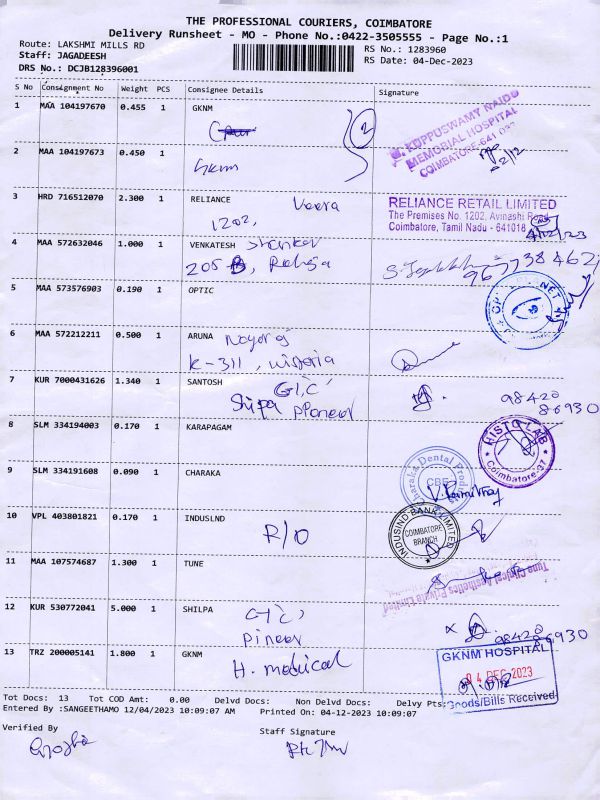 THE PROFESSIONAL COURIERS, COIMBATORE
Delivery Runsheet - MO - Phone No.:0422-3505555 - Page No.:1
Route: LAKSHMI MILLS RD
RS No.: 1283960
Staff: JAGADEESH
RS Date: 04-Dec-2023
DRS No.: DCJB128396001
S No Consignment No Weight PCS Consignee Details Signature
1 MAA 104197670 0.455 1 GKNM
2
K. KOPPUSWAMY NAIDU
MEMORIAL HOSPITAL
COIMBATORE-641 037
2 MAA 104197673 0.450 1
Gknm
2/12
3 HRD 716512070 2.300 1 RELIANCE Veera
1202,
RELIANCE RETAIL LIMITED
The Premises No. 1202, Avinashi Road
Coimbatore, Tamil Nadu - 641018
4/12/23
4 MAA 572632046 1.000 1 VENKATESH Shankar
205 B, Raheja
5 MAA 573576903 0.190 1 OPTIC
6 MAA 572212211 0.500 1 ARUNA
K-311, Wisteria
7 KUR 7000431626 1.340 1 SANTOSH G1C'
98420
86930
8 SLM 334194003 0.170 1 KARAPAGAM
HISTO LAB
Coimbatore-37
9 SLM 334191608 0.090 1 CHARAKA
Charaka Dental Products
CBE
10 VPL 403801821 0.170 1 INDUSLND
R/O
INDUSIND BANK LIMITED
COIMBATORE
BRANCH
11 MAA 107574687 1.300 1 TUNE
12 KUR 530772041 5.000 1 SHILPA G1C'
Pineer
x 98420 86930
13 TRZ 200005141 1.800 1 GKNM
H. medical
GKNM HOSPITAL
04 DEC 2023
Goods/Bills Received
Tot Docs: 13 Tot COD Amt: 0.00 Delvd Docs: Non Delvd Docs: Delvy Pts:
Entered By :SANGEETHAMO 12/04/2023 10:09:07 AM Printed On: 04-12-2023 10:09:07
Verified By
Staff Signature